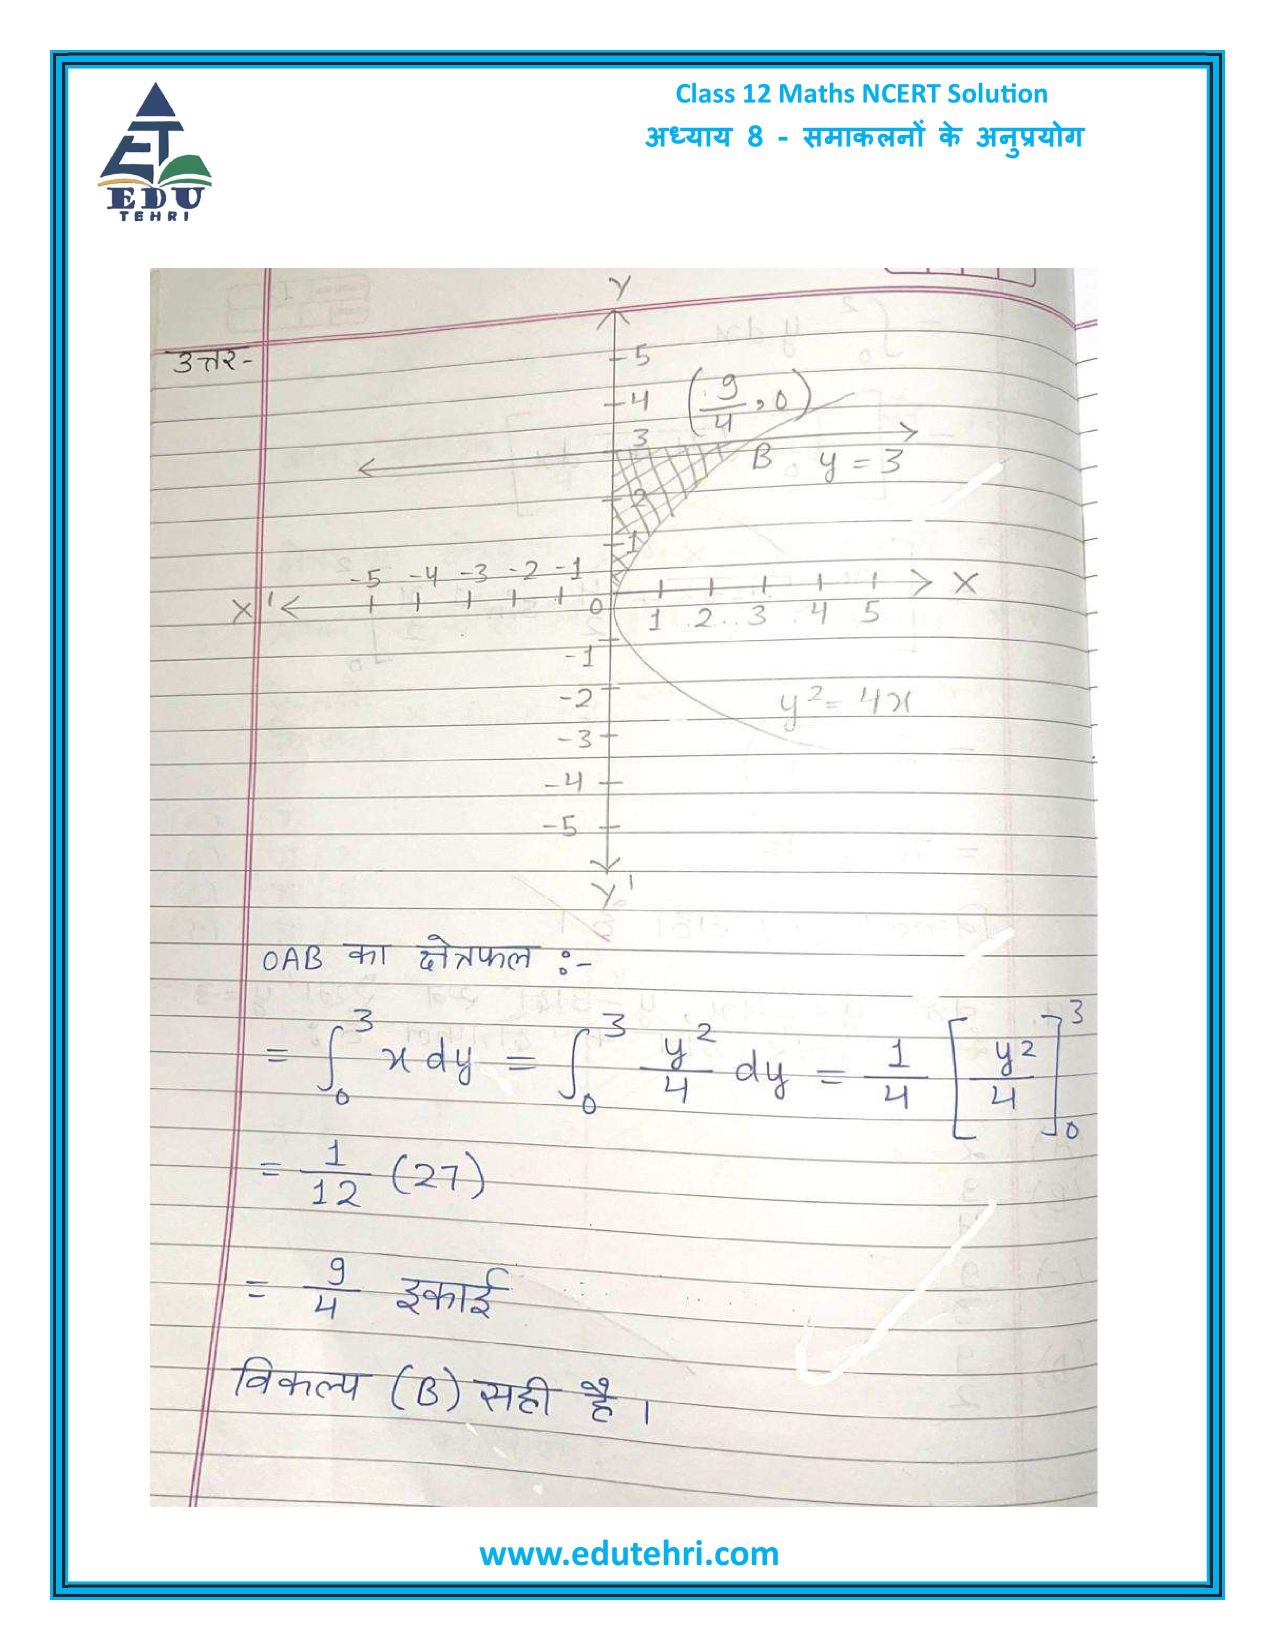 Class 12 Maths NCERT Solution
अध्याय 8 - समाकलनों के अनुप्रयोग
EDU
TEHRI
उत्तर-
Y
5
4
(9/4, 0)
3
B
y = 3
2
1
-5 -4 -3 -2 -1
X' 0 1 2 3 4 5 X
-1
-2
y² = 4x
-3
-4
-5
Y'
OAB का क्षेत्रफल :-
= ∫₀³ x dy = ∫₀³ y²/4 dy = 1/4 [y²/4]₀³
= 1/12 (27)
= 9/4 इकाई
विकल्प (B) सही है ।
www.edutehri.com